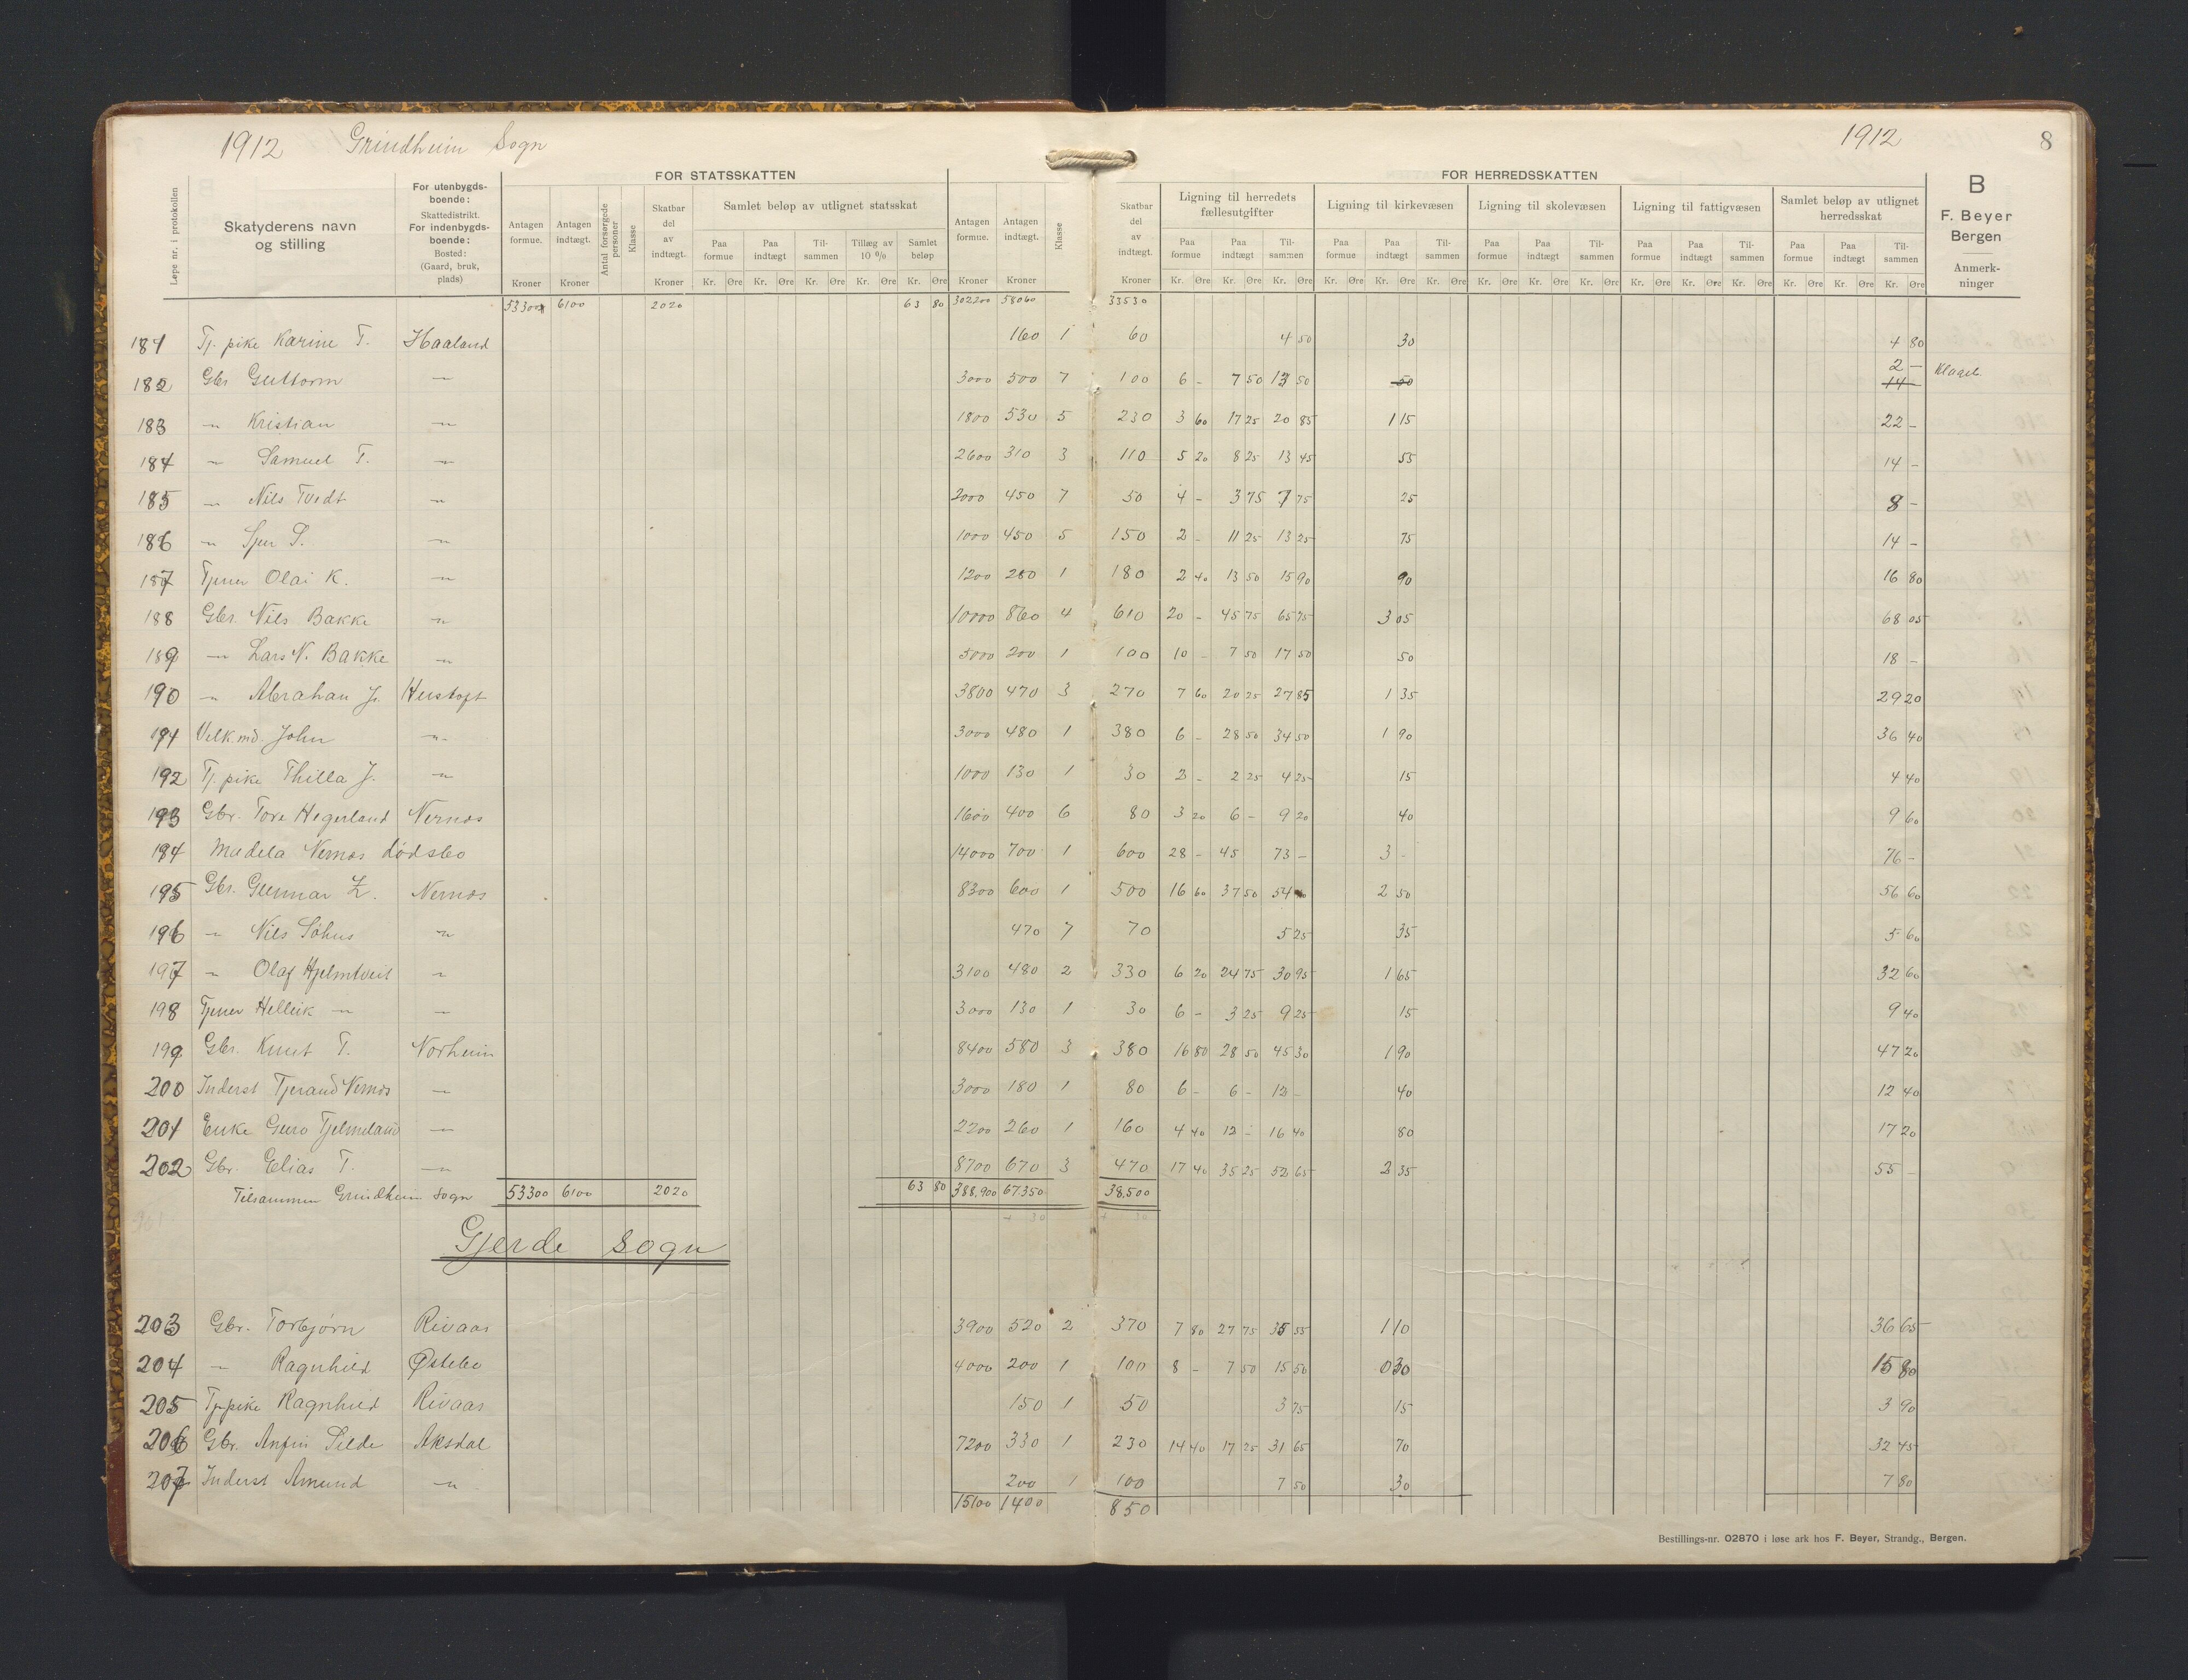 1912 Grindheim Sogn 1912 8
FOR STATSSKATTEN FOR HERREDSSKATTEN
Løpe nr. i protokollen
Skatyderens navn og stilling
For utenbygdsboende: Skattedistrikt. For indenbygdsboende: Bosted: (Gaard, bruk, plads)
Antagen formue. Kroner
Antagen indtægt. Kroner
Antal forsørgede personer
Klasse
Skatbar del av indtægt. Kroner
Samlet beløp av utlignet statsskat
Paa formue Paa indtægt Tilsammen Tillæg av 10 % Samlet beløp
Kr. Øre Kr. Øre Kr. Øre Kr. Øre Kr. Øre
Antagen formue. Kroner
Antagen indtægt. Kroner
Klasse
Skatbar del av indtægt. Kroner
Ligning til herredets fællesutgifter
Ligning til kirkevæsen
Ligning til skolevæsen
Ligning til fattigvæsen
Samlet beløp av utlignet herredsskat
Paa formue Paa indtægt Tilsammen Paa formue Paa indtægt Tilsammen Paa formue Paa indtægt Tilsammen Paa formue Paa indtægt Tilsammen Paa formue Paa indtægt Tilsammen
Kr. Øre Kr. Øre Kr. Øre Kr. Øre Kr. Øre Kr. Øre Kr. Øre Kr. Øre Kr. Øre Kr. Øre Kr. Øre Kr. Øre Kr. Øre Kr. Øre Kr. Øre
B
F. Beyer
Bergen
Anmerkninger
53300 6100 2020 63 80 302200 58060 33530
181 Tj. pike Karine T. Haaland 160 1 60 4 50 30 4 80
2 –
182 Gbr Guttorm – 3000 500 7 100 6 – 7 50 13 50 50 14 – Klaget
183 – Kristian – 1800 530 5 230 3 60 17 25 20 85 1 15 22 –
184 – Samuel T. – 2600 310 3 110 5 20 8 25 13 45 55 14 –
185 – Nils Tvedt – 2000 450 7 50 4 – 3 75 7 75 25 8 –
186 – S. – 1000 450 5 150 2 – 11 25 13 25 75 14 –
187 Tjener Olai K. – 1200 280 1 180 2 40 13 50 15 90 90 16 80
188 Gbr. Nils Bakke – 10000 860 4 610 20 – 45 75 65 75 3 05 68 05
189 – Lars N. Bakke – 5000 200 1 100 10 – 7 50 17 50 50 18 –
190 – Abraham J. Hustoft 3800 470 3 270 7 60 20 25 27 85 1 35 29 20
191 John – 3000 480 1 380 6 – 28 50 34 50 1 90 36 40
192 Tj. pike Thilla J. – 1000 130 1 30 2 – 2 25 4 25 15 4 40
193 Gbr. Tore Hegerland Nernos 1600 400 6 80 3 20 6 – 9 20 40 9 60
194 Madela Nernos dødsbo 14000 700 1 600 28 – 45 73 – 3 – 76 –
195 Gbr. Gunnar Nernos 8300 600 1 500 16 60 37 50 54 2 50 56 60
196 – Nils Søhus – 470 7 70 5 25 35 5 60
197 – Olaf Hjelmtveit – 3100 480 2 330 6 20 24 75 30 95 1 65 32 60
198 Tjener Helleik – – 3000 130 1 30 6 – 3 25 9 25 15 9 40
199 Gbr. Knut T. Norheim 8400 580 3 380 16 80 28 50 45 30 1 90 47 20
200 Inderst Tjerand Nernos – 3000 180 1 80 6 – 6 – 12 – 40 12 40
201 Enke Guro Tjelmeland – 2200 260 1 160 4 40 12 – 16 40 80 17 20
202 Gbr. Elias T. – 8700 670 3 470 17 40 35 25 52 65 2 35 55 –
Tilsammen Grindheim sogn 53300 6100 2020 63 80 388.900 67350 38.500
Gjerde sogn
203 Gbr. Torbjørn Rivaas 3900 520 2 370 7 80 27 75 35 55 1 10 36 65
204 – Ragnhild Østebø 4000 200 1 100 8 – 7 50 15 50 0 30 15 80
205 Tj.pike Ragnhild Rivaas 150 1 50 3 75 15 3 90
206 Gbr. Anfin Silde Aksdal 7200 330 1 230 14 40 17 25 31 65 70 32 45
207 Inderst Amund – 200 1 100 7 50 30 7 80
15100 1400 850
Bestillings-nr. 02870 i løse ark hos F. Beyer, Strandg., Bergen.